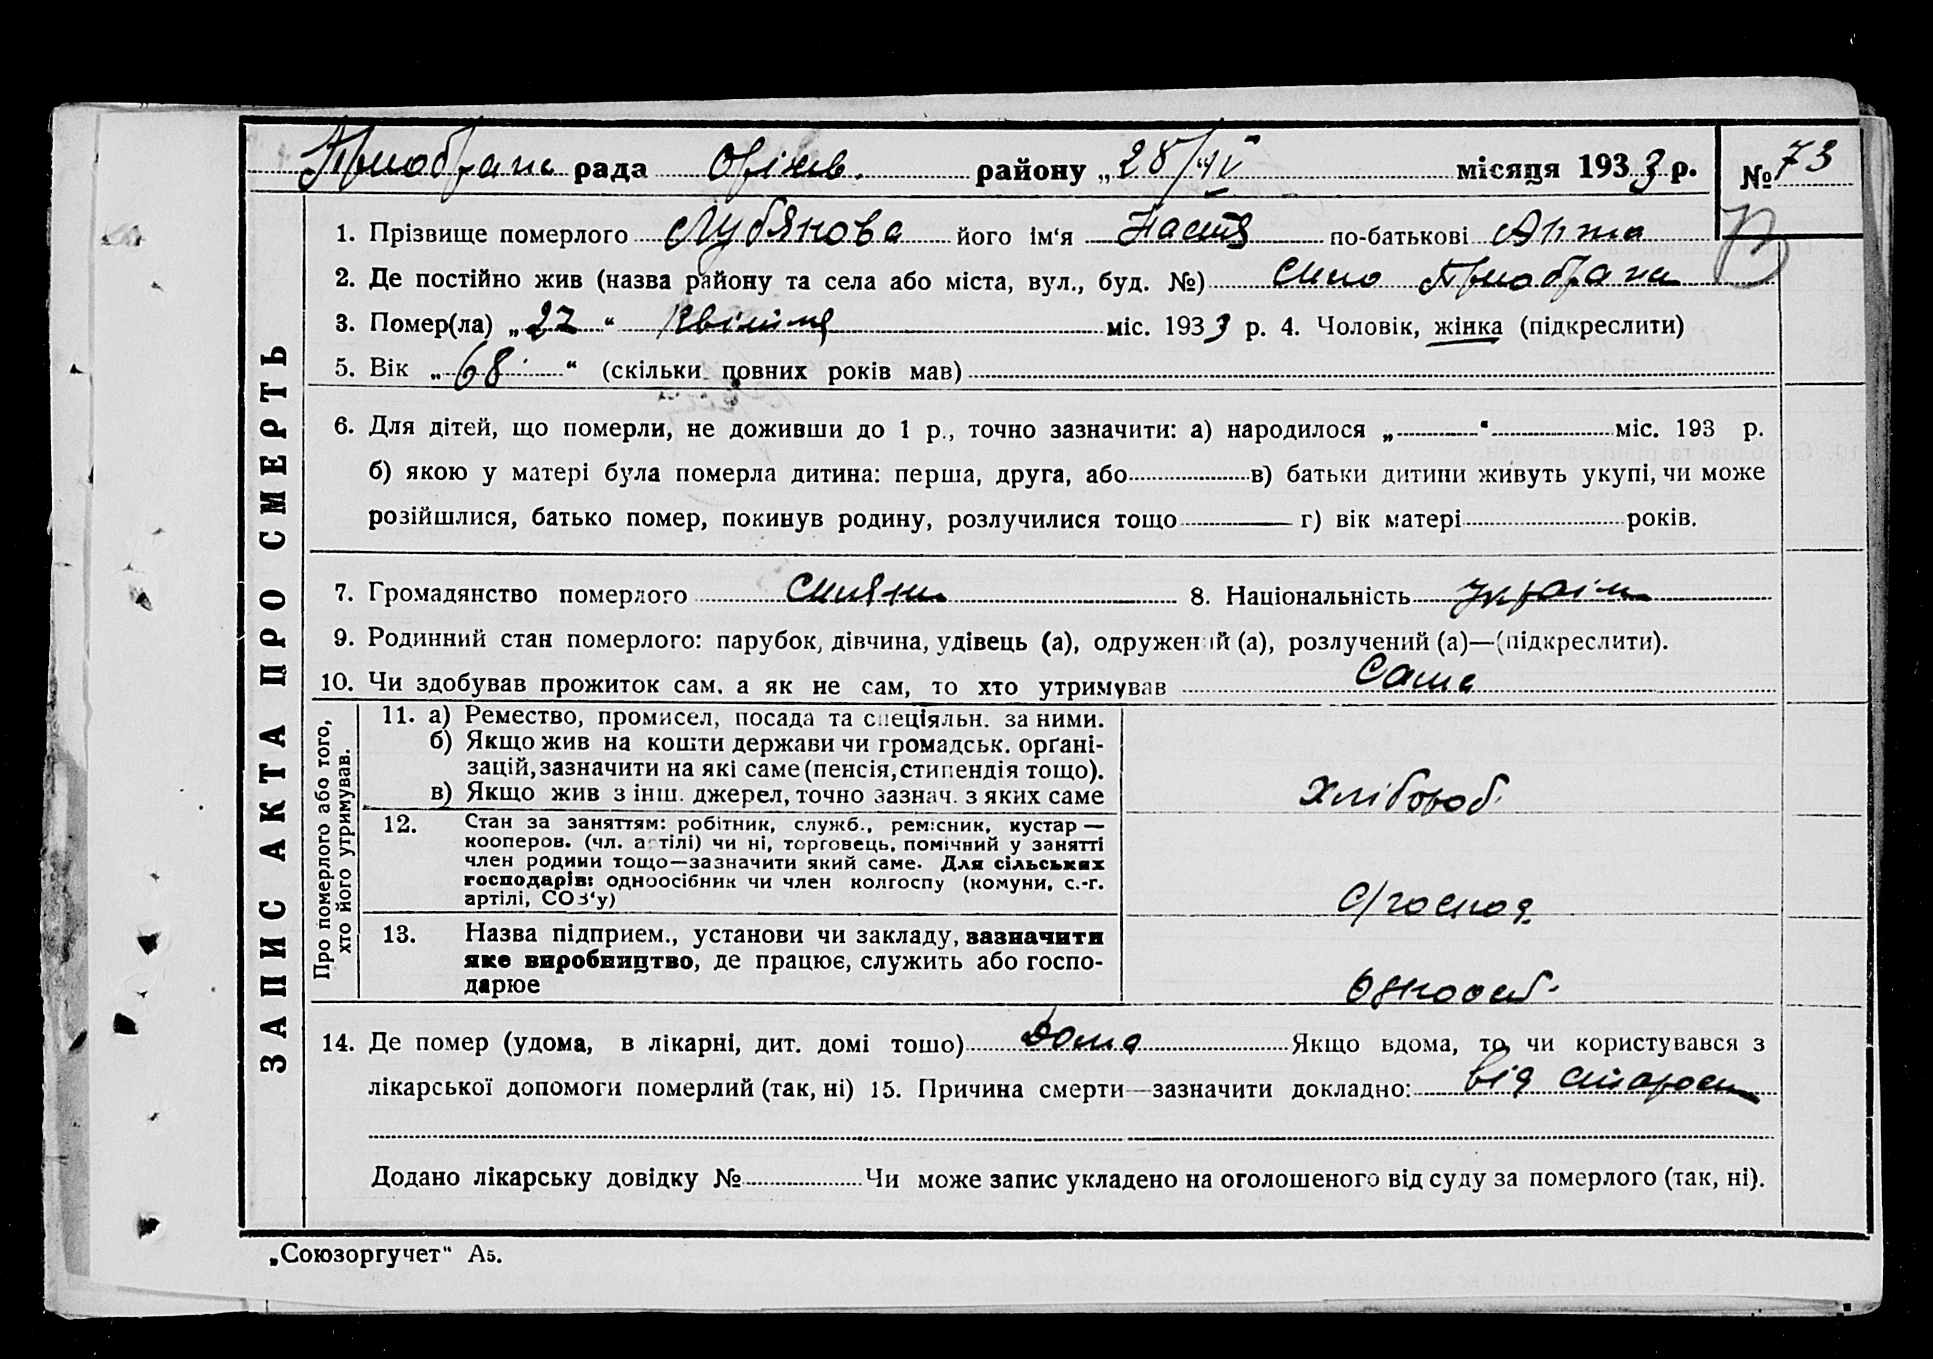 Преображен рада Оріхів. району „28/IV місяця 1933 р. № 73
1. Прізвище померлого Лубянова його ім‘я Настя по-батькові Анто
2. Де постійно жив (назва району та села або міста, вул., буд. №) село Преображен
3. Помер(ла) „27“ квітня міс. 1933 р. 4. Чоловік, жінка (підкреслити)
5. Вік „68“ (скільки повних років мав)
6. Для дітей, що померли, не доживши до 1 р., точно зазначити: а) народилося „ “ міс. 193 р.
б) якою у матері була померла дитина: перша, друга, або в) батьки дитини живуть укупі, чи може
розійшлися, батько помер, покинув родину, розлучилися тощо г) вік матері років.
7. Громадянство померлого селянка 8. Національність україн
9. Родинний стан померлого: парубок, дівчина, удівець (а), одружений (а), розлучений (а)—(підкреслити).
10. Чи здобував прожиток сам, а як не сам, то хто утримував Сама
ЗАПИС АКТА ПРО СМЕРТЬ
Про померлого або того,
хто його утримував.
11. а) Ремество, промисел, посада та спеціяльн. за ними.
б) Якщо жив на кошти держави чи громадськ. орґані-
зацій, зазначити на які саме (пенсія, стипендія тощо).
в) Якщо жив з інш. джерел, точно зазнач. з яких саме
Хлібороб.
12. Стан за заняттям: робітник, служб., ремісник, кустар —
кооперов. (чл. артілі) чи ні, торговець, помічний у занятті
член родини тощо—зазначити який саме. Для сільських
господарів: одноосібник чи член колгоспу (комуни, с.-г.
артілі, СОЗ‘у)
с/господ.
13. Назва підприєм., установи чи закладу, зазначити
яке виробництво, де працює, служить або госпо-
дарює
Одноосіб.
14. Де помер (удома, в лікарні, дит. домі тощо) Дома Якщо вдома, то чи користувався з
лікарської допомоги померлий (так, ні) 15. Причина смерти—зазначити докладно: від старости
Додано лікарську довідку № Чи може запис укладено на оголошеного від суду за померлого (так, ні).
„Союзоргучет“ А5.